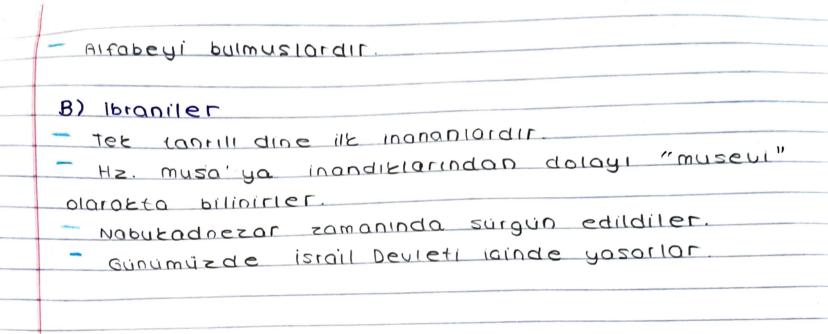 - Alfabeyi bulmuslardır.
B) Ibraniler
- Tek tanrılı dine ilk inananlardır.
- Hz. musa'ya inandıklarından dolayı "musevi"
olarakta bilinirler.
- Nabukadnezar zamanında sürgün edildiler.
- Günümüzde israil Devleti içinde yasarlar.